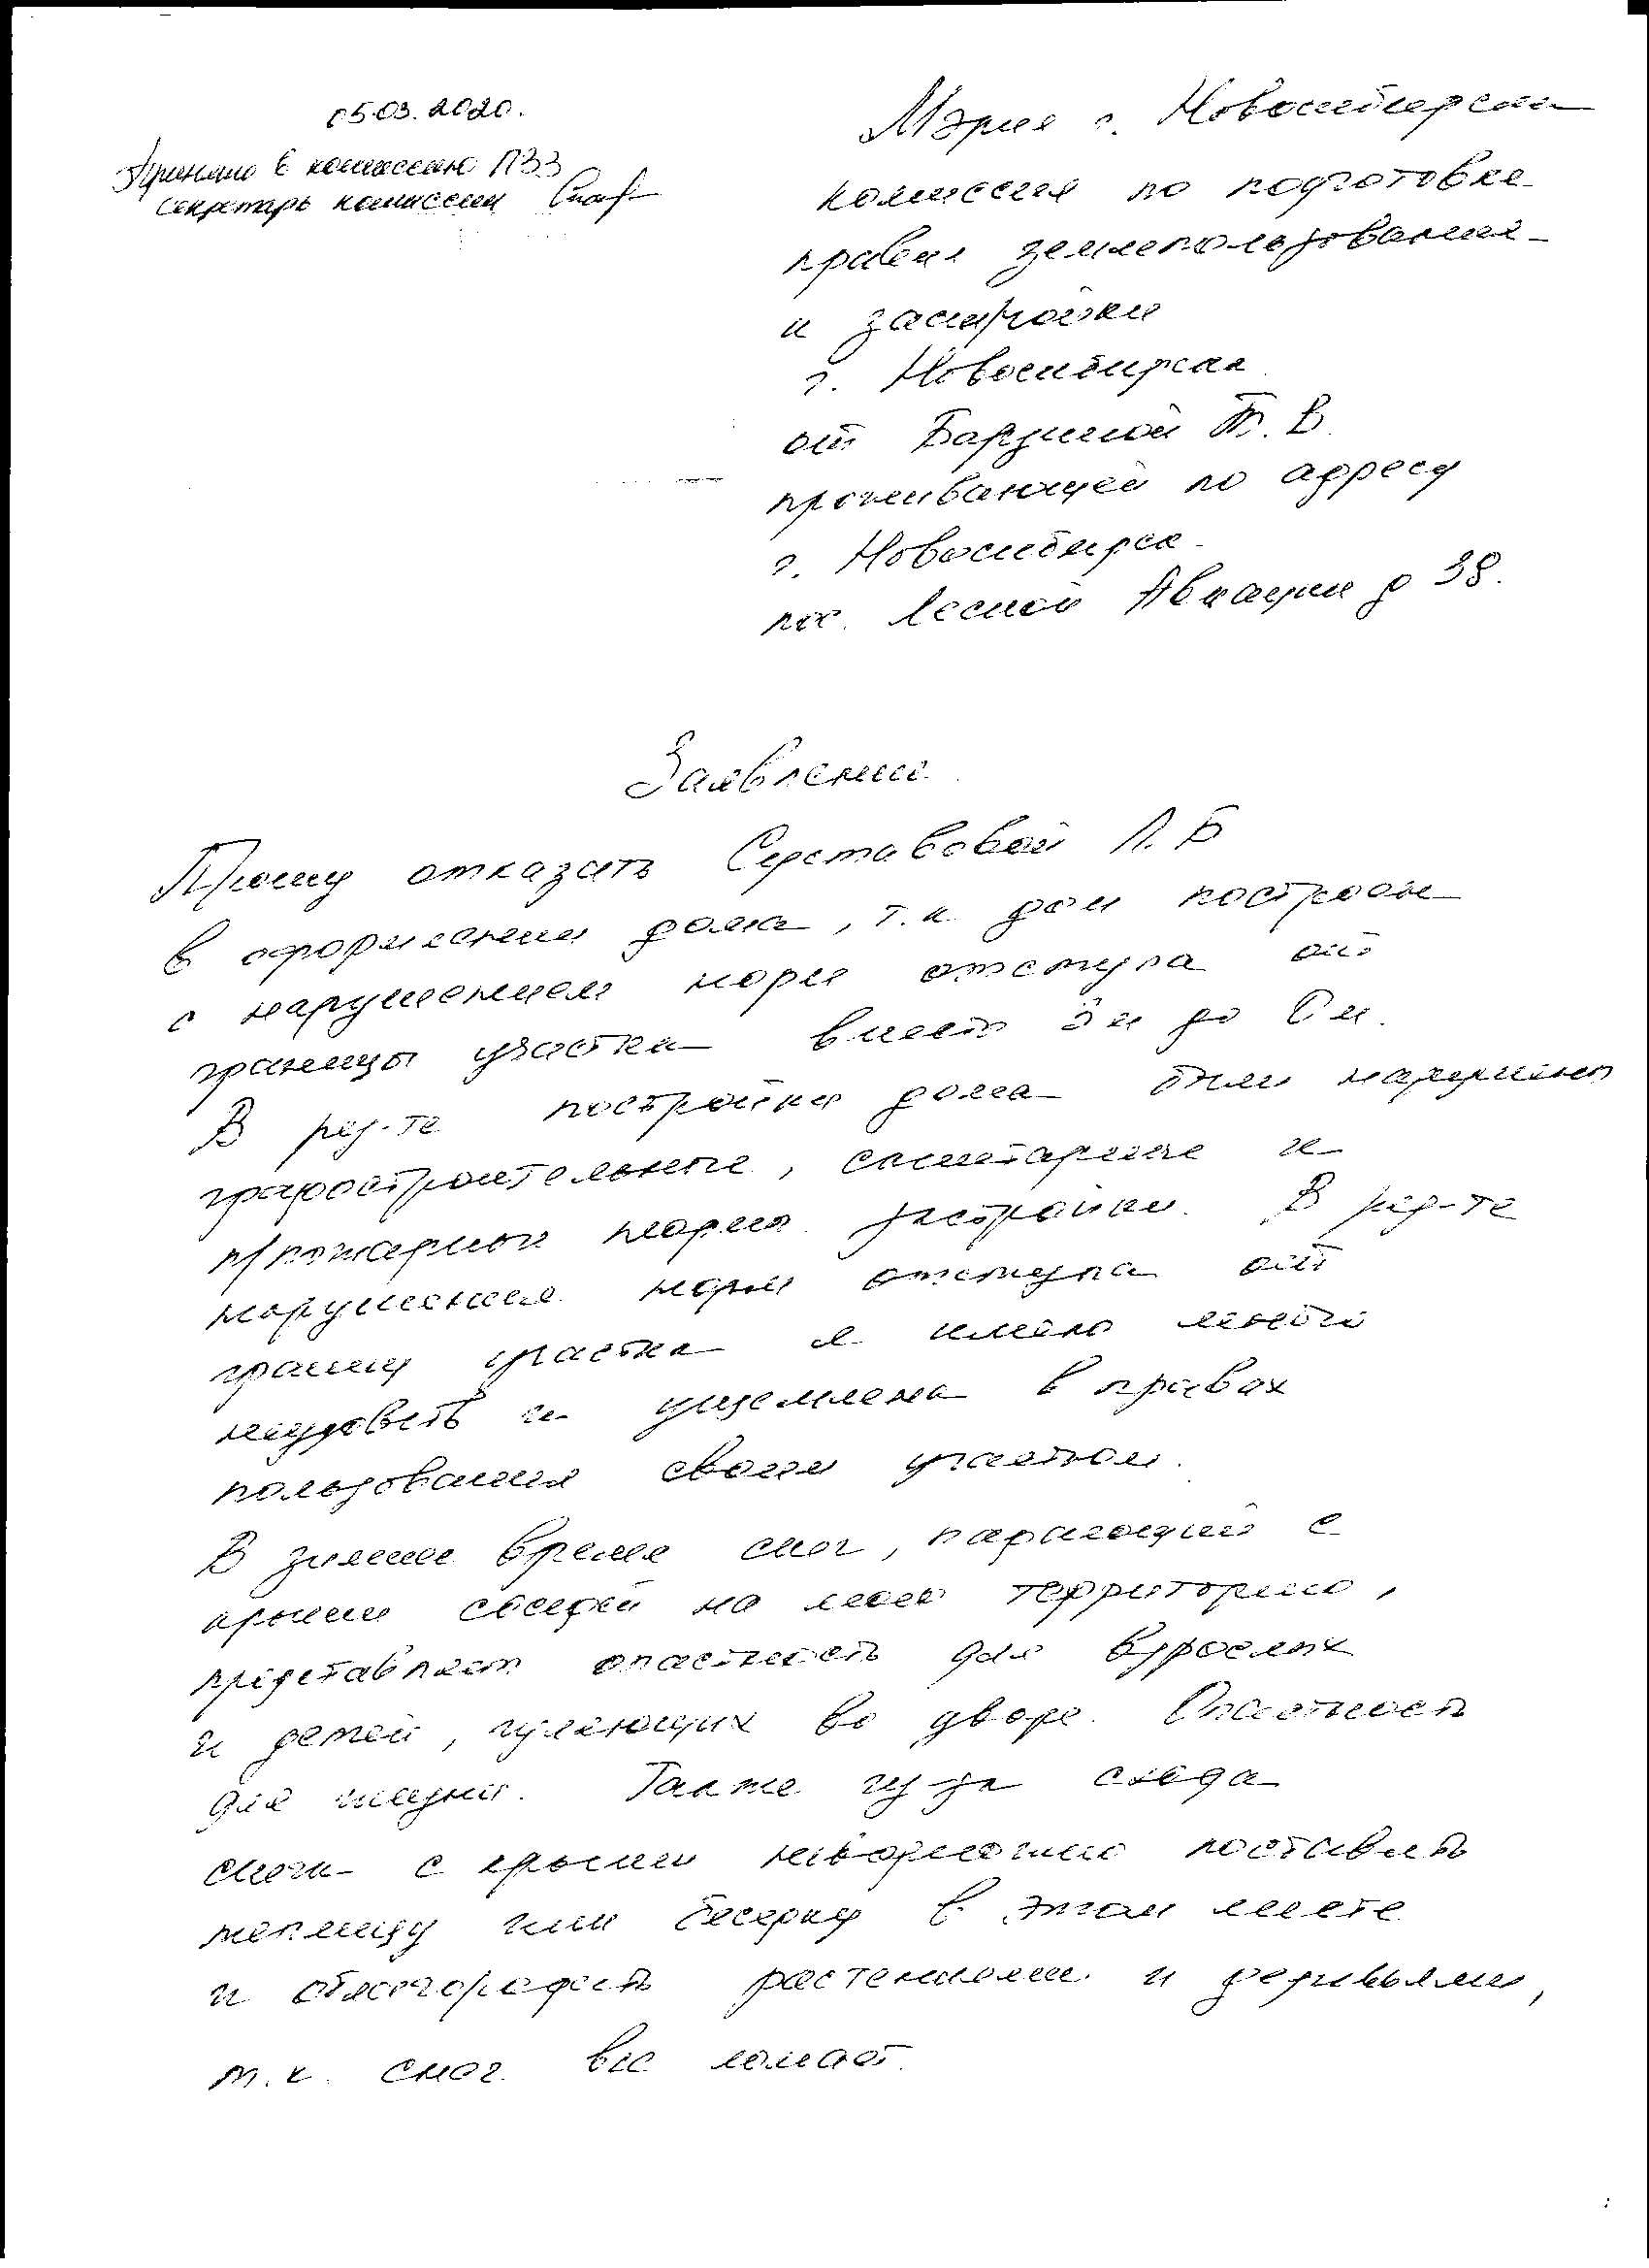 05.03.2020.
Принято в комиссию ПЗЗ
Секретарь комиссии
Мэрия г. Новосибирска
комиссия по подготовке
правил землепользования
и застройки
г. Новосибирска
от Барзуниной Т. В.
проживающей по адресу
г. Новосибирск
пос. Лесной Авиации д 38.
Заявление.
Прошу отказать Серставовой Л. Б
в оформлении дома, т.к. дом построен
с нарушением норм отступа от
границы участка вместо 3 м до 0 м.
В рез-те постройки дома были нарушены
градостроительные, санитарные и
п/пожарные нормы застройки. В рез-те
нарушения норм отступа от
границ участка я имею много
неудобств и ущемлена в правах
пользования своим участком.
В зимнее время снег, падающий с
крыши соседей на мою территорию,
представляет опасность для взрослых
и детей, гуляющих во дворе. Опасность
для жизни. Также из за схода
снега с крыши невозможно поставить
теплицу или беседку в этом месте
и облагородить растениями и деревьями,
т.к. снег все ломает.